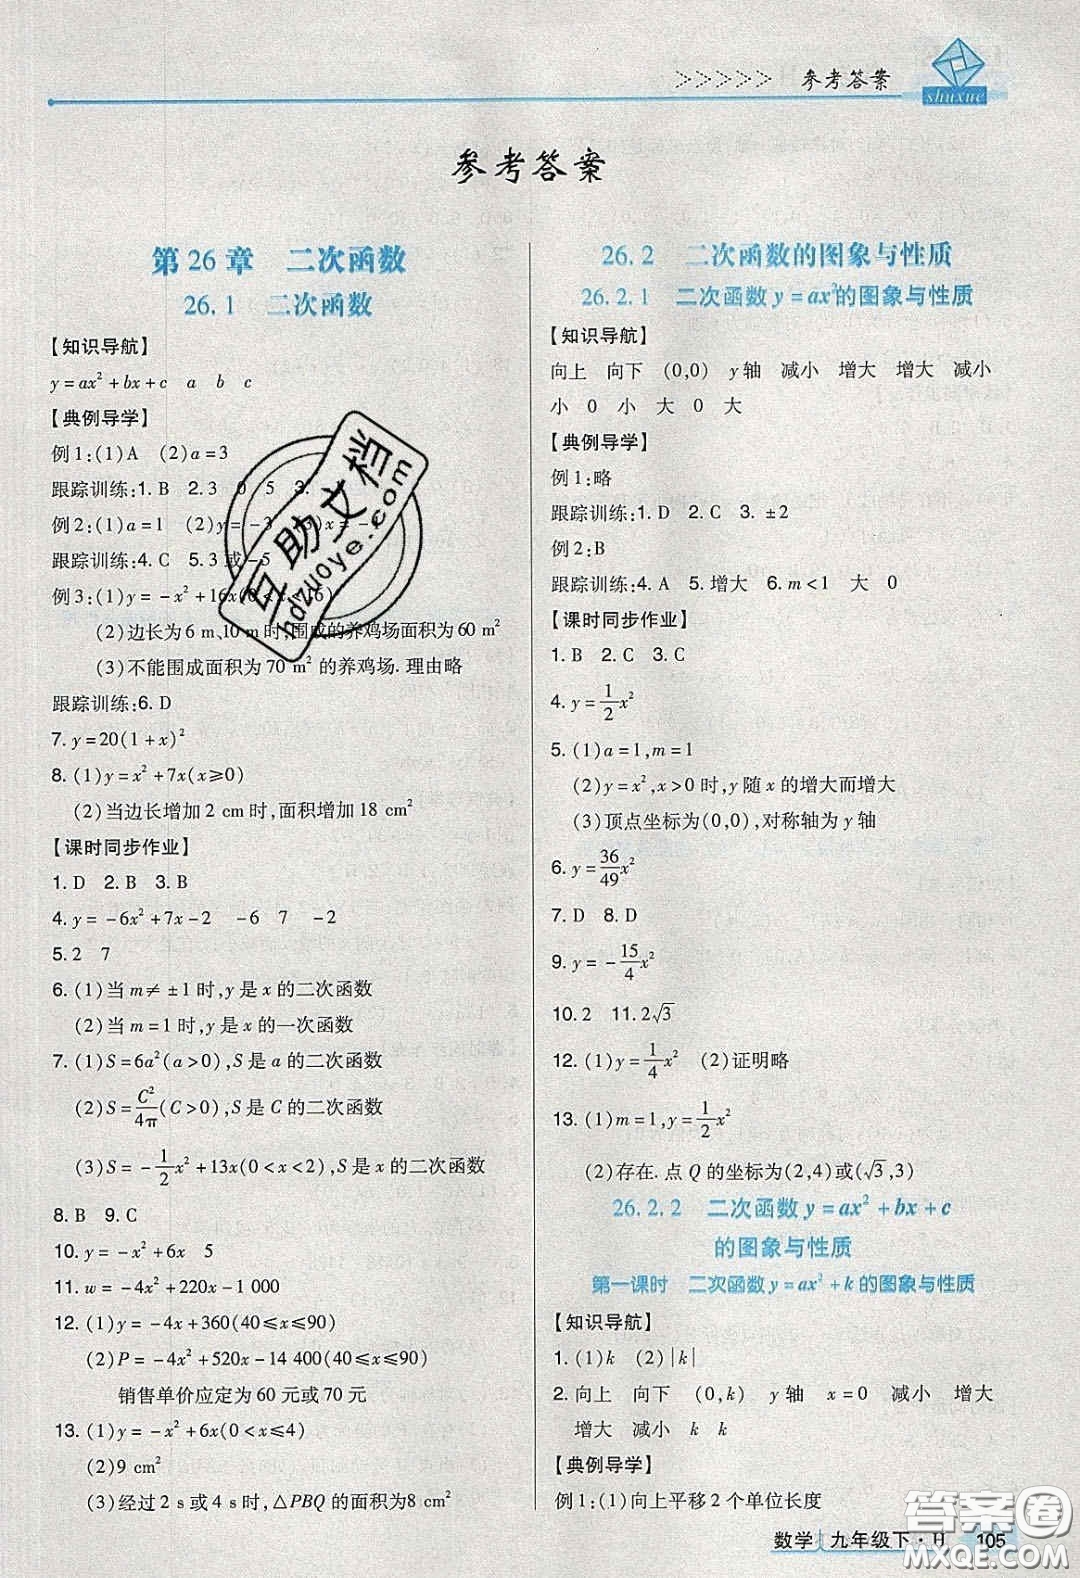 >>>>> 参考答案
shuxue
参考答案
第26章 二次函数
26.1 二次函数
【知识导航】
y=ax²+bx+c a b c
【典例导学】
例1:(1)A (2)a=3
跟踪训练:1. B 2.3 0 5 3.
例2:(1)a=1 (2)y=-3 (3)x=-
跟踪训练:4. C 5.3或-5
例3:(1)y=-x²+16x(0<x<16)
(2)边长为6 m、10 m时,围成的养鸡场面积为60 m²
(3)不能围成面积为70 m²的养鸡场.理由略
跟踪训练:6. D
7. y=20(1+x)²
8. (1)y=x²+7x(x≥0)
(2)当边长增加2 cm时,面积增加18 cm²
【课时同步作业】
1. D 2. B 3. B
4. y=-6x²+7x-2 -6 7 -2
5. 2 7
6. (1)当m≠±1时,y是x的二次函数
(2)当m=1时,y是x的一次函数
7. (1)S=6a²(a>0),S是a的二次函数
(2)S=C²/4π(C>0),S是C的二次函数
(3)S=-1/2x²+13x(0<x<2),S是x的二次函数
8. B 9. C
10. y=-x²+6x 5
11. w=-4x²+12x-1 000
12. (1)y=-4x+360(40≤x≤90)
(2)P=-4x²+520x-14 400(40≤x≤90)
销售单价应定为60元或70元
13. (1)y=-x²+6x(0<x≤4)
(2)9 cm²
(3)经过2 s或4 s时,△PBQ的面积为8 cm²
26.2 二次函数的图象与性质
26.2.1 二次函数y=ax²的图象与性质
【知识导航】
向上 向下 (0,0) y轴 减小 增大 增大 减小
小 0 小 大 0 大
【典例导学】
例1:略
跟踪训练:1. D 2. C 3. ±2
例2:B
跟踪训练:4. A 5. 增大 6. m<1 大 0
【课时同步作业】
1. B 2. C 3. C
4. y=1/2x²
5. (1)a=1,m=1
(2)y=x²,x>0时,y随x的增大而增大
(3)顶点坐标为(0,0),对称轴为y轴
6. y=36/49x²
7. D 8. D
9. y=-15/4x²
10. 2 11. 2√3
12. (1)y=1/4x² (2)证明略
13. (1)m=1,y=1/2x²
(2)存在.点Q的坐标为(2,4)或(√3,3)
26.2.2 二次函数y=ax²+bx+c
的图象与性质
第一课时 二次函数y=ax²+k的图象与性质
【知识导航】
1. (1)k (2)|k|
2. 向上 向下 (0,k) y轴 x=0 减小 增大
增大 减小 k k
【典例导学】
例1:(1)向上平移2个单位长度
数学 九年级下·H 105
互助文档
hdzuoye.com
答案圈
MXQE.COM